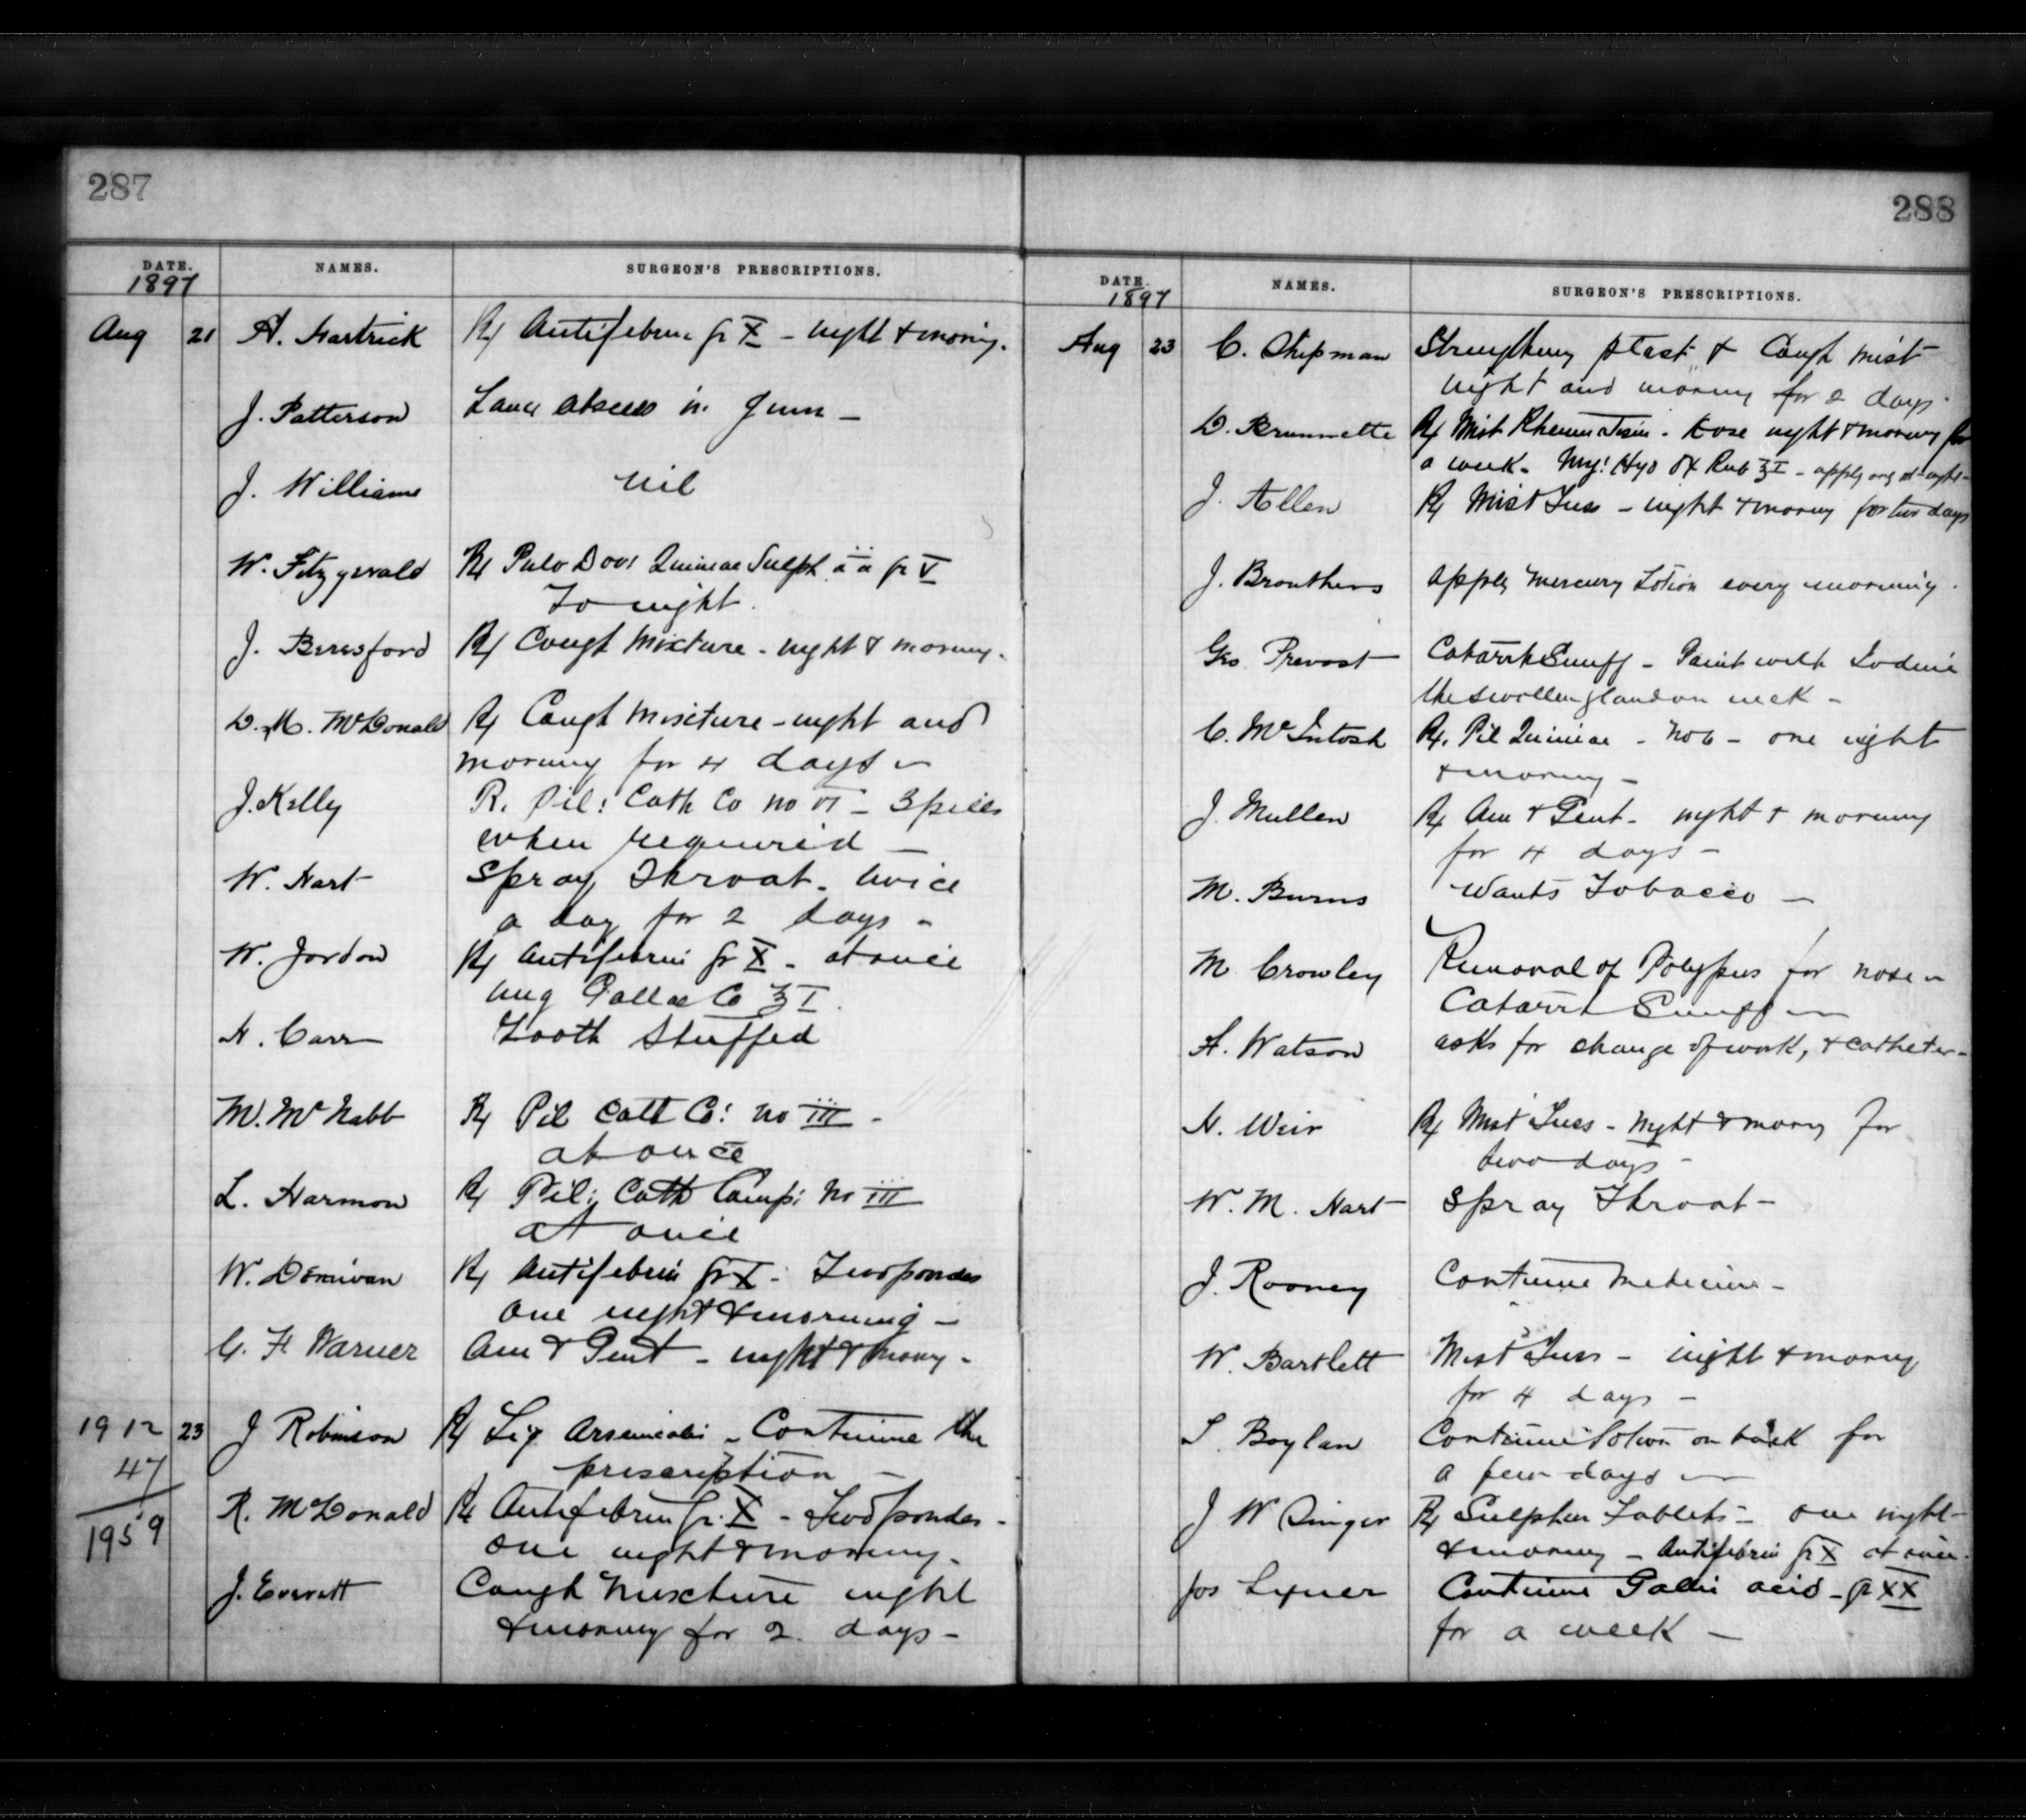 287
DATE. NAMES. SURGEON'S PRESCRIPTIONS.
1897
Aug 21 A. Hartrick Rx Antifebrin gr X - night & morning.
J. Patterson Lance abscess in Gum -
J. Williams nil
W. Fitzgerald Rx Pulv Dovi Quiniae Sulph āā gr V
To night.
J. Beresford Rx Cough Mixture - night & morning.
D. M. McDonald Rx Cough Mixture - night and
morning for 4 days -
J. Kelly R. Pil: Cath Co no VI - 3 pills
when required -
W. Hart Spray Throat. twice
a day for 2 days -
W. Jordon Rx Antifebrin gr X - at once
Ung Gallae Co ℥ I.
H. Carr Tooth Stuffed
M. McNabb Rx Pil Cath Co: no III -
at once
L. Harmon Rx Pil: Cath Comp: no III
at once
W. Donivan Rx Antifebrin gr X - Two powders
one night & morning -
C. H. Warner Am & Gent - night & morng -
1912 23 J Robinson Rx Liq Arsenicalis - Continue the
47 prescription -
1959 R. McDonald Rx Antifebrin gr. X - Two powders -
one night & morning.
J. Everett Cough Mixture night
& morning for 2 days -
288
DATE. NAMES. SURGEON'S PRESCRIPTIONS.
1897
Aug 23 C. Chipman Strengthening plast & Cough mist
night and morning for 2 days.
D. Brunnette Rx Mist Rheumatism - dose night & morning for
a week - Ung: Hyd Ox Rub ℥ I - apply at night -
J. Allen Rx Mist Tuss - night & morning for two days
J. Brouthers Apply Mercury Lotion every morning.
Geo Prevost Catarrh Snuff - Paint with Iodine
the swollen gland on neck -
C. McIntosh Rx. Pil Quiniae - No 6 - one night
& morning -
J. Mullen Rx Am & Gent - night & morning
for 4 days -
M. Burns Wants Tobacco -
M Crowley Removal of Polypus for nose -
Catarrh Snuff -
H. Watson asks for change of work, & catheter -
N. Weir Rx Mist Tuss - night & morng for
two days -
W. M. Hart Spray Throat -
J. Rooney Continue Medicine -
W. Bartlett Mist Tuss - night & morng
for 4 days -
S. Boylan Continue lotion on back for
a few days -
J W Singer Rx Sulphur Tablets - one night
& morning - Antifebrin gr X at once.
Jos Continue Gallic acid - gr XX
for a week -